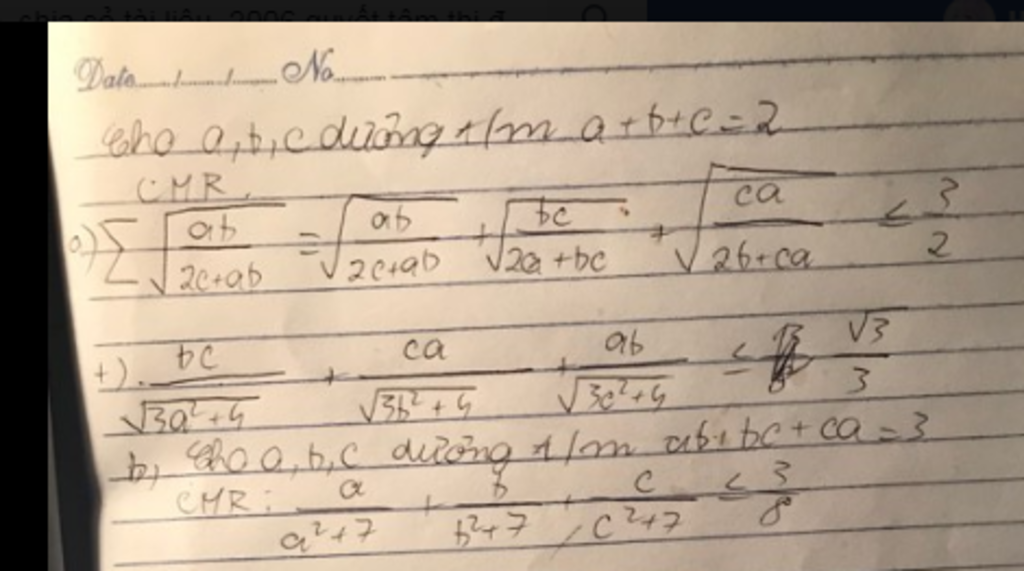 Date....../....../...... No........
Cho a, b, c dương t/m a+b+c=2
CMR.
a) ∑√(ab/(2c+ab)) = √(ab/(2c+ab)) + √(bc/(2a+bc)) + √(ca/(2b+ca)) ≤ 3/2
+) bc/√(3a²+4) + ca/√(3b²+4) + ab/√(3c²+4) ≤ √3/3
b, Cho a, b, c dương t/m ab+bc+ca=3
CMR: a/(a²+7) + b/(b²+7) + c/(c²+7) ≤ 3/8